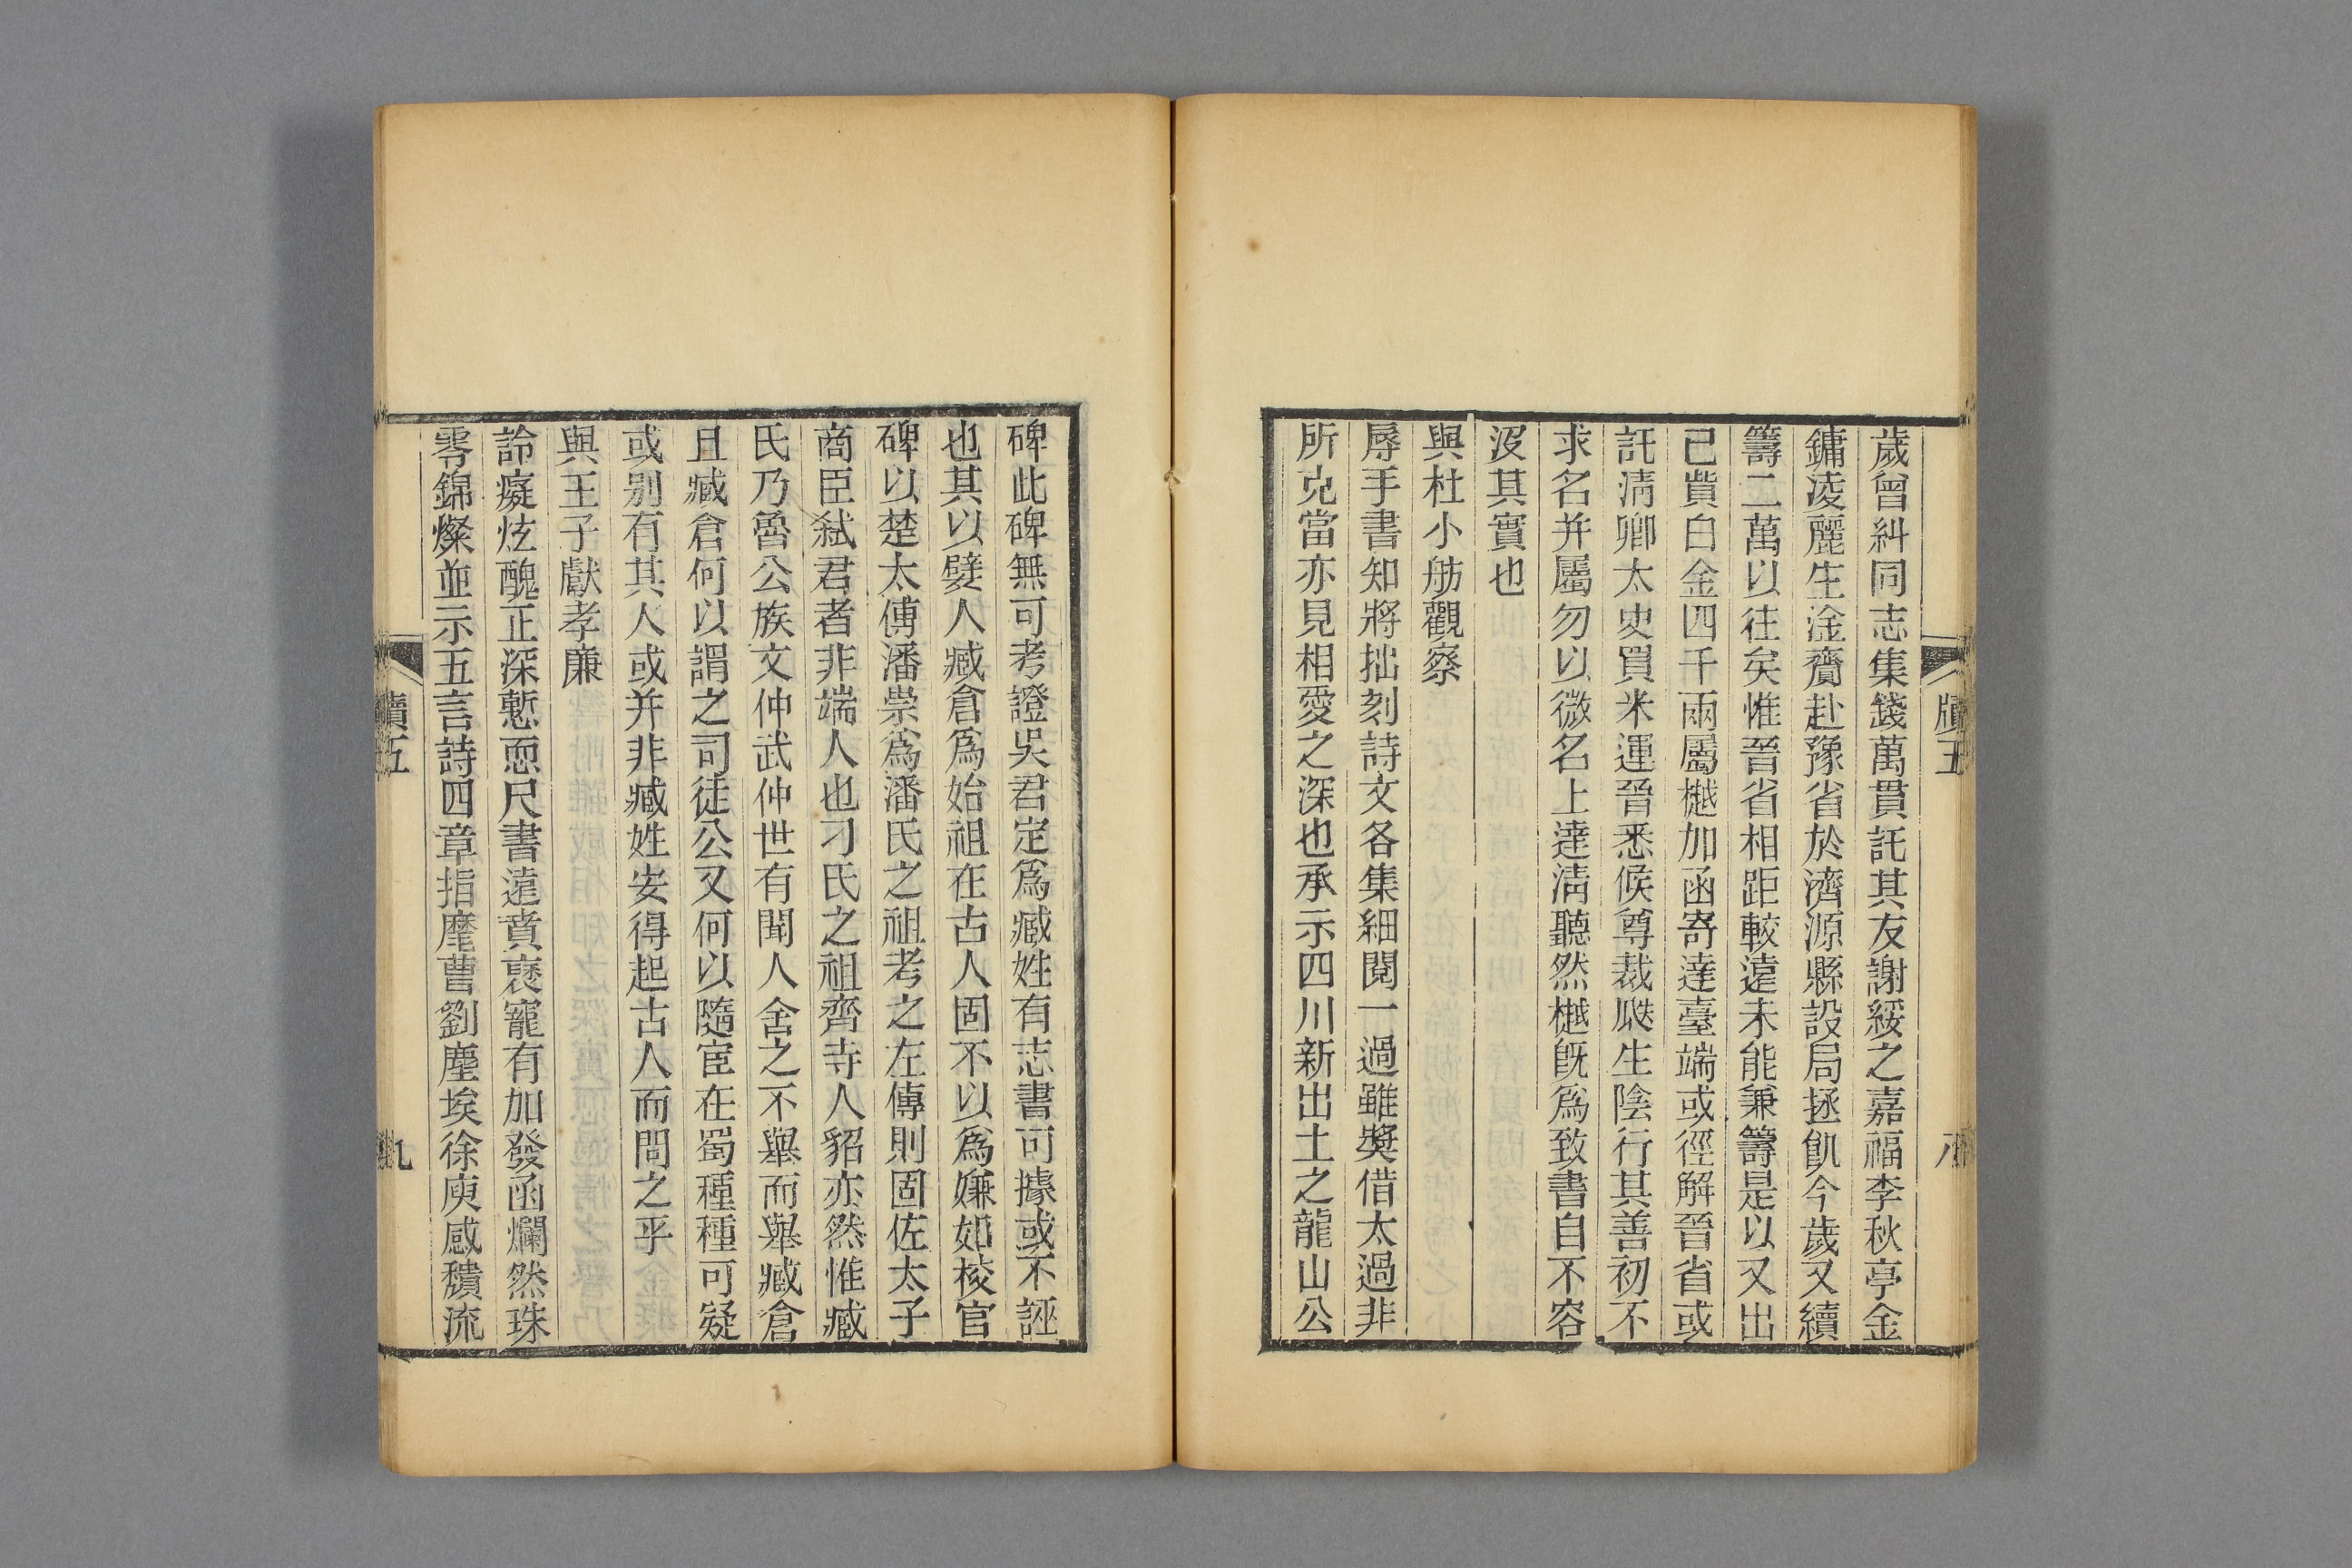 牘五
八
歲曾糾同志集錢萬貫託其友謝綏之嘉福李秋亭金
鏞淩麗生淦齎赴豫省於濟源縣設局拯飢今歲又續
籌二萬以往矣惟晉省相距較遠未能兼籌是以又出
己貲白金四千兩屬樾加函寄達臺端或徑解晉省或
託淸卿太史買米運晉悉候尊裁瓞生陰行其善初不
求名并屬勿以微名上達淸聽然樾旣爲致書自不容
沒其實也
與杜小舫觀察
辱手書知將拙刻詩文各集細閱一過雖奬借太過非
所克當亦見相愛之深也承示四川新出土之龍山公
碑此碑無可考證吳君定爲臧姓有志書可據或不誣
也其以嬖人臧倉爲始祖在古人固不以爲嫌如棱官
碑以楚太傅潘崇爲潘氏之祖考之左傳則固佐太子
商臣弑君者非端人也刁氏之祖齊寺人貂亦然惟臧
氏乃魯公族文仲武仲世有聞人舍之不舉而舉臧倉
且臧倉何以謂之司徒公又何以隨宦在蜀種種可疑
或别有其人或并非臧姓安得起古人而問之乎
與王子獻孝廉
詅癡炫醜正深慙恧尺書遠賁裦寵有加發函爛然珠
零錦燦並示五言詩四章指麾曹劉塵埃徐庾感穨流
牘五
九